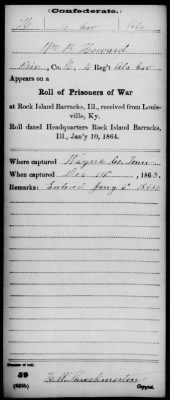 Confederate.
H 4 Cav Ala
Wm B Howard
Priv, Co. H, 4 Reg't Ala Cav
Appears on a
Roll of Prisoners of War
at Rock Island Barracks, Ill., received from Louis-
ville, Ky.
Roll dated Headquarters Rock Island Barracks,
Ill., Jan'y 10, 1864.
Where captured Wayne Co. Tenn
When captured Dec 14, 1863.
Remarks: Jany 6"
Number of roll:
59
Copyist.